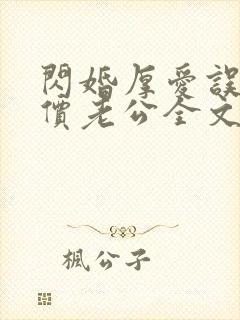 閃婚厚愛誤
價老公全文
楓公子